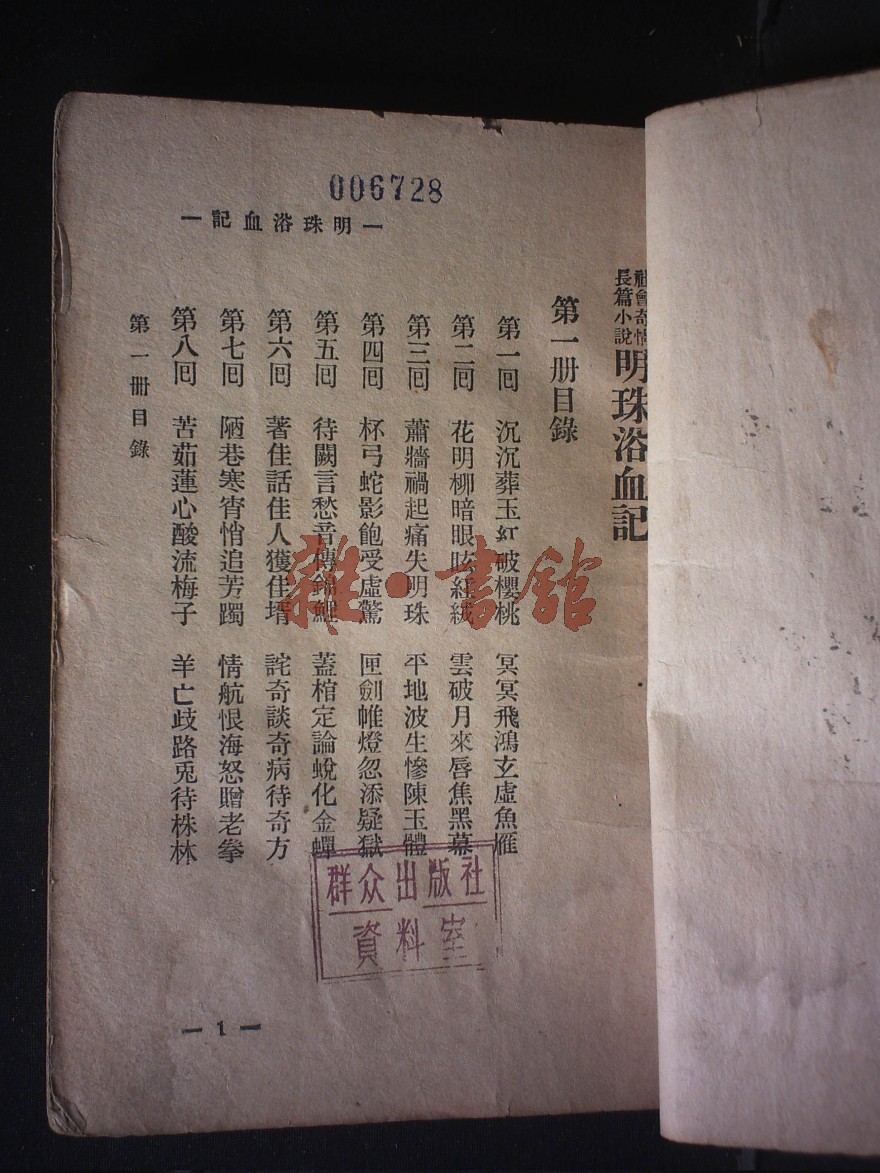 006728
—明珠浴血記—
社會奇情
長篇小說
明珠浴血記
第一册目錄
第一囘 沉沉葬玉紅破櫻桃 冥冥飛鴻玄虛魚雁
第二囘 花明柳暗眼眩紅絨 雲破月來唇焦黑幕
第三囘 蕭牆禍起痛失明珠 平地波生慘陳玉體
第四囘 杯弓蛇影飽受虛驚 匣劍帷燈忽添疑獄
第五囘 待闕言愁音傳錦鯉 蓋棺定論蛻化金蟬
第六囘 著佳話佳人獲佳壻 詫奇談奇病待奇方
第七囘 陋巷寒宵悄追芳躅 情航恨海怒贈老拳
第八囘 苦茹蓮心酸流梅子 羊亡歧路兎待株林
第一册目錄
雜·書館
群众出版社
資料室
—1—